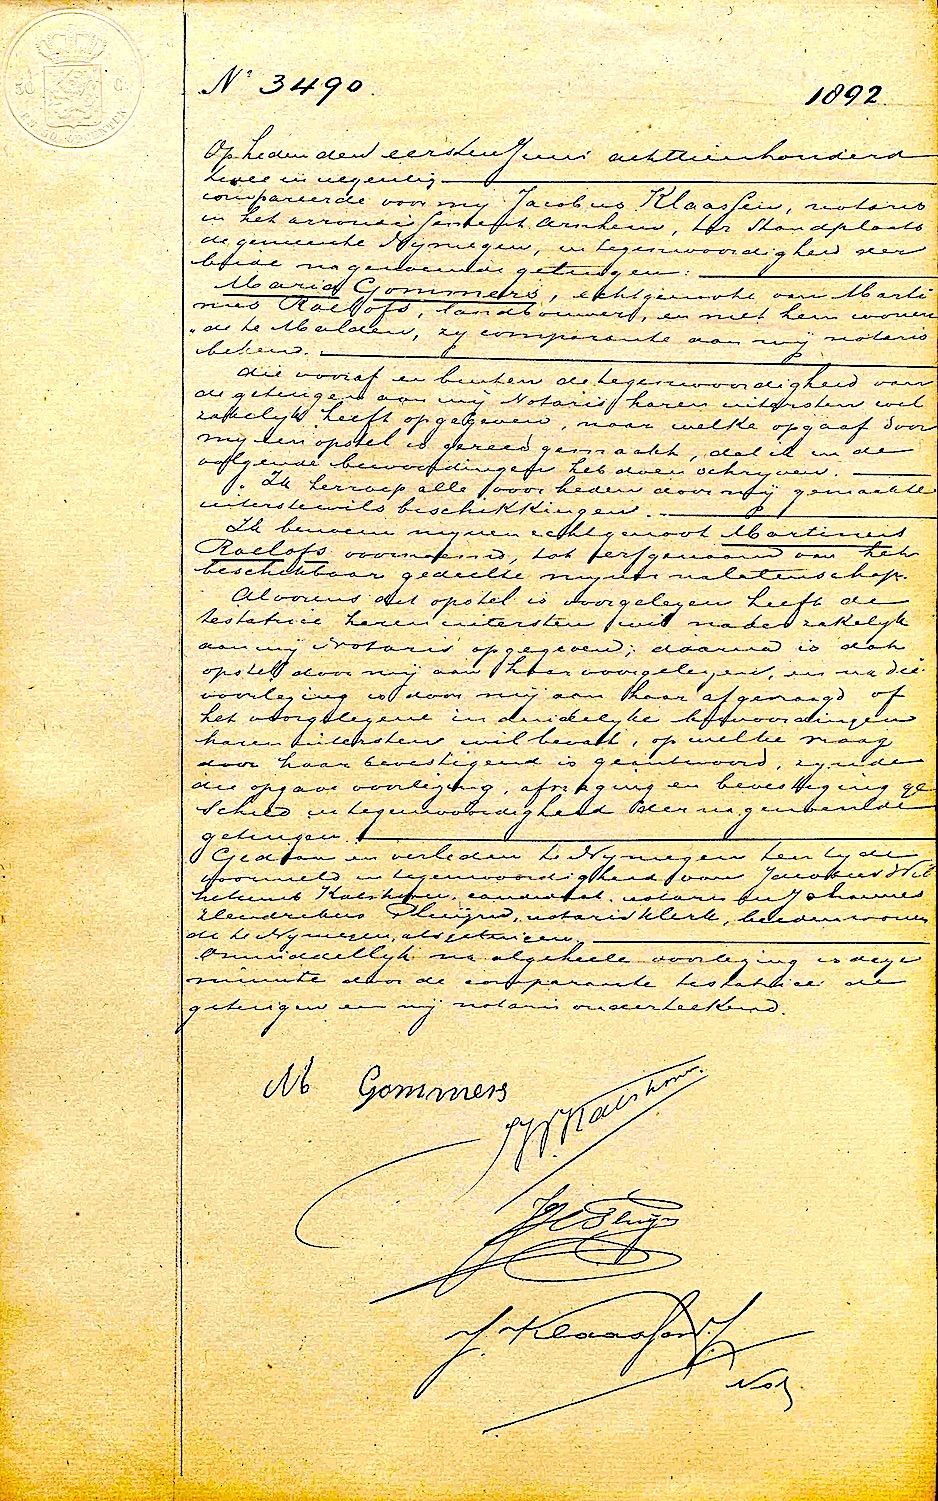 50 C.
EN 50 OPCENTEN
No 3490.
1892
Op heden den eersten Juni achttienhonderd
twee en negentig
compareerde voor my Jacobus Klaassen, notaris
in het arrondissement Arnhem, ter Standplaats
de gemeente Nymegen, in tegenwoordigheid der
beide na genoemde getuigen:
Maria Gommers, echtgenoote van Marti
nus Roelofs, landbouwer, en met hem wonen
"de te Malden, zy comparante aan mij notaris
bekend.
die vooraf en buiten de tegenwoordigheid van
de getuigen aan mij Notaris haren uitersten wil
zakelyk heeft opgegeven, naar welke opgaaf door
my een opstel is gereed gemaakt, dat ik in de
volgende bewoordingen heb doen schryven.
"Ik herroep alle voor heden door mij gemaakte
uiterstewils beschikkingen.
Ik benoem mynen echtgenoot Martinus
Roelofs voornoemd, tot erfgenaam van het
beschikbaar gedeelte myner nalatenschap.
Alvorens dit opstel is voorgelezen heeft de
testatrice haren uitersten wil nader zakelyk
aan mij Notaris opgegeven; daarna is dat
opstel door mij aan haar voorgelezen, en na die
voorlezing is door mij aan haar afgevraagd of
het voorgelezene in duidelyke bewoordingen
haren uitersten wil bevat, op welke vraag
door haar bevestigend is geantwoord, zynde
die opgave voorlezing, afvraging en bevestiging ge
schied in tegenwoordigheid der na genoemde
getuigen.
Gedaan en verleden te Nymegen ten tyde
voormeld in tegenwoordigheid van Jacobus Wil
helmus Kalshoven, candidaat notaris en Johannes
Hendrikus Thuijs, notarisklerk, beiden wonen
de te Nymegen, als getuigen.
Onmiddellyk na algeheele voorlezing is deze
minute door de comparante testatrice de
getuigen en mij notaris onderteekend.
M Gommers
JW Kalshoven
J. Klaassen
Not